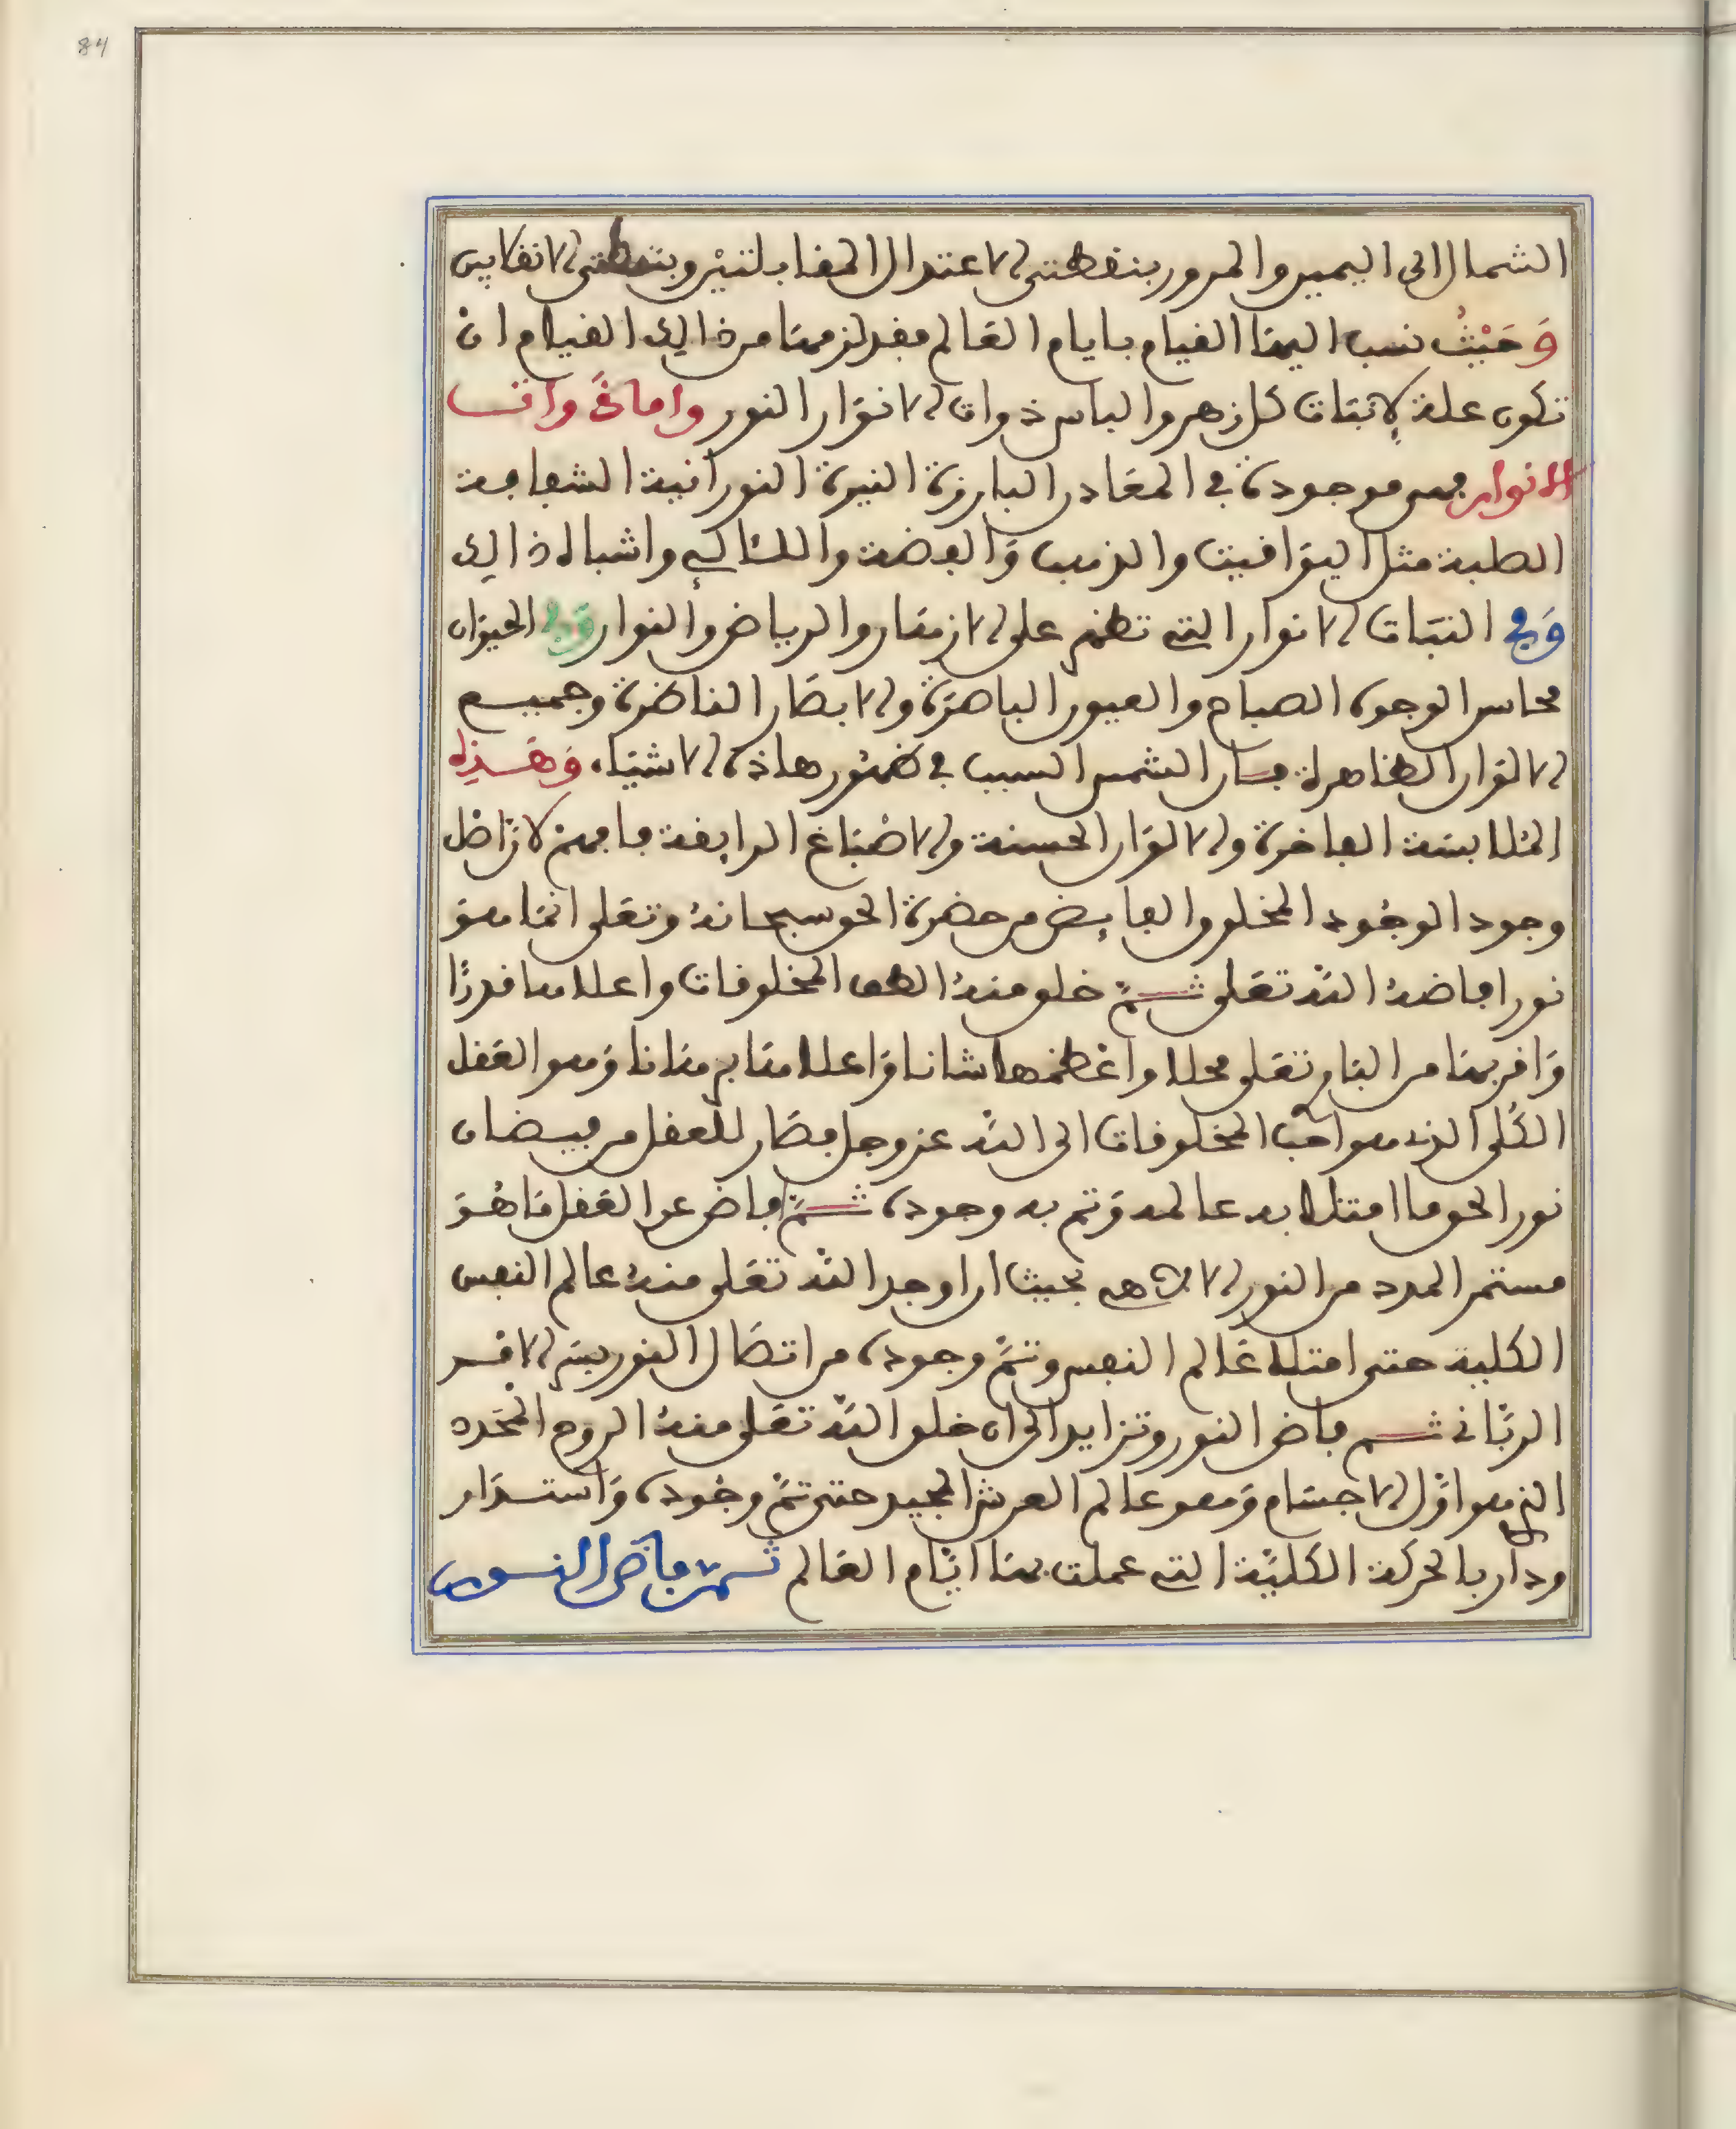 84
الشمال الى اليمين والمرور بنقطتى الاعتدال المقابلتين وبنقطتى الانقلابين
وَحَيْثُ نسب اليها القيام بايام العالم فقد لزمها من ذالك القيام ان
تكون علة لاثبات كل زهر والباس ذوات الانوار النور واماذَ واتــا
الانوار فهى موجودة فى المعادن البارزة النيرة النورانية الشعاعية
الصلبة مثل اليواقيت والذهب والفضة واللئالئ واشباه ذالك
وَفى النبات الانوار التى تظهر على الازهار والرياض والنوار وَفى الحيوان
محاسن الوجوه الصباح والعيون الباهرة والابصار الناضرة وجميع
الالوان الظاهرة فــان الشمس السبب فى ظهور هاذه الاشياء وَهَــذِهِ
الملابسة الفاخرة والالوان الحسنة والاصباغ الرايقة فافهم لان اصل
وجود الوجود المخلوق الفايض من حضرة الحق سبحانه وتعلى انما هو
نور افاضه الله تعلى ثــم خلق منه الطف المخلوقات واعلاها قدرًا
وَاقربها من البارى تعلى محلا واعظمها شانا وَاعلاها برهانا وَهو العقل
الكُلى الذى هو احب المخلوقات الى الله عز وجل فصار للعقل من فيضان
نور الحق ما امتلا به عالمه وَتم به وجوده ثــم افاض عن العقل مَا هُوَ
مستمر المدد من النور الالاهى بحيث ان اوجد الله تعلى منه عالم النفس
الكلية حتى امتلا عَالم النفس وتمَّ وجوده من اتصَال النوريين الامــر
الربّانى ثــم فاض النور وتزايد الى ان خلق الله تعلى منه الروح المحده
الذى هو اوّل الاجسَام وَهو عالم العرش المجيد حتى تمَّ وجُوده وَاستــدَار
ودار بالحركة الكليّة التى عملت بها ايّام العَالم ثــمّ فاض النــور